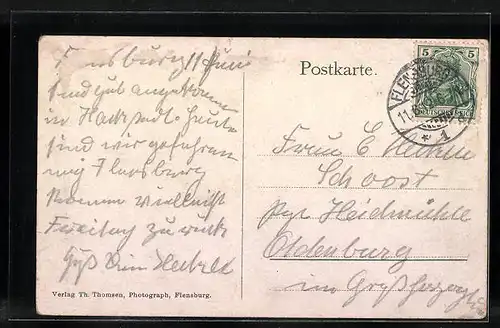 Flensburg 11 Juni
sind gut angekommen
in Hackstedt. Heute
sind wir gefahren
Flensburg
kommen vielleicht
Freitag zurück
Gruß
Verlag Th. Thomsen, Photograph, Flensburg.
Postkarte.
5 5
DEUTSCHES REICH
FLENSBURG
11.6
* 1
Frau C
Schoost
pr Heidmühle
Oldenburg
im Großherzog